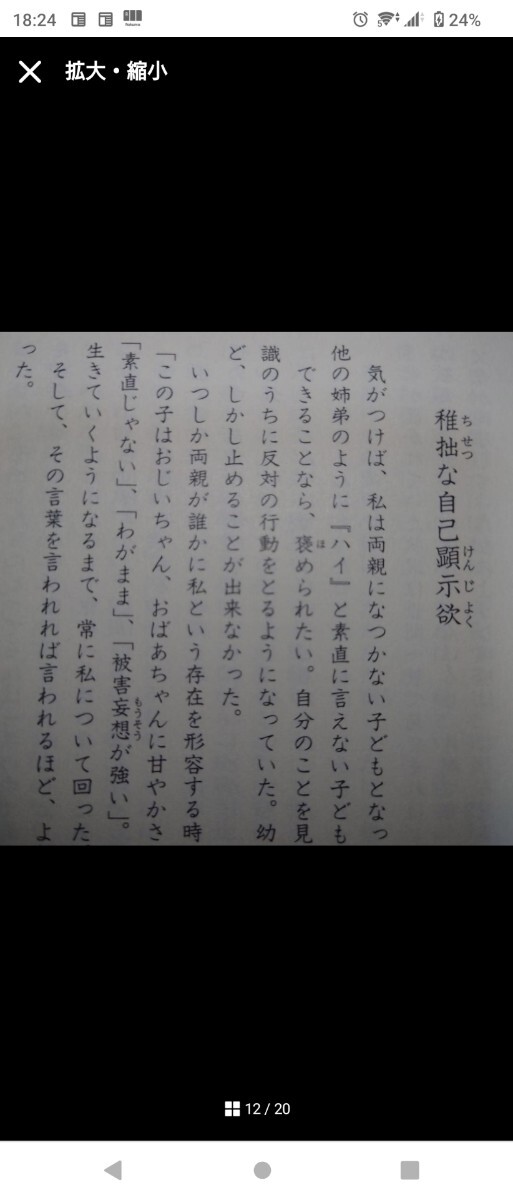 18:24
24%
拡大・縮小
稚拙な自己顕示欲
ちせつ
けんじよく
気がつけば、私は両親になつかない子どもとなっ
他の姉弟のように『ハイ』と素直に言えない子ども
できることなら、褒められたい。自分のことを見
ほ
識のうちに反対の行動をとるようになっていた。幼
ど、しかし止めることが出来なかった。
いつしか両親が誰かに私という存在を形容する時
「この子はおじいちゃん、おばあちゃんに甘やかさ
「素直じゃない」、「わがまま」、「被害妄想が強い」。
もうそう
生きていくようになるまで、常に私について回った
そして、その言葉を言われれば言われるほど、よ
った。
12 / 20